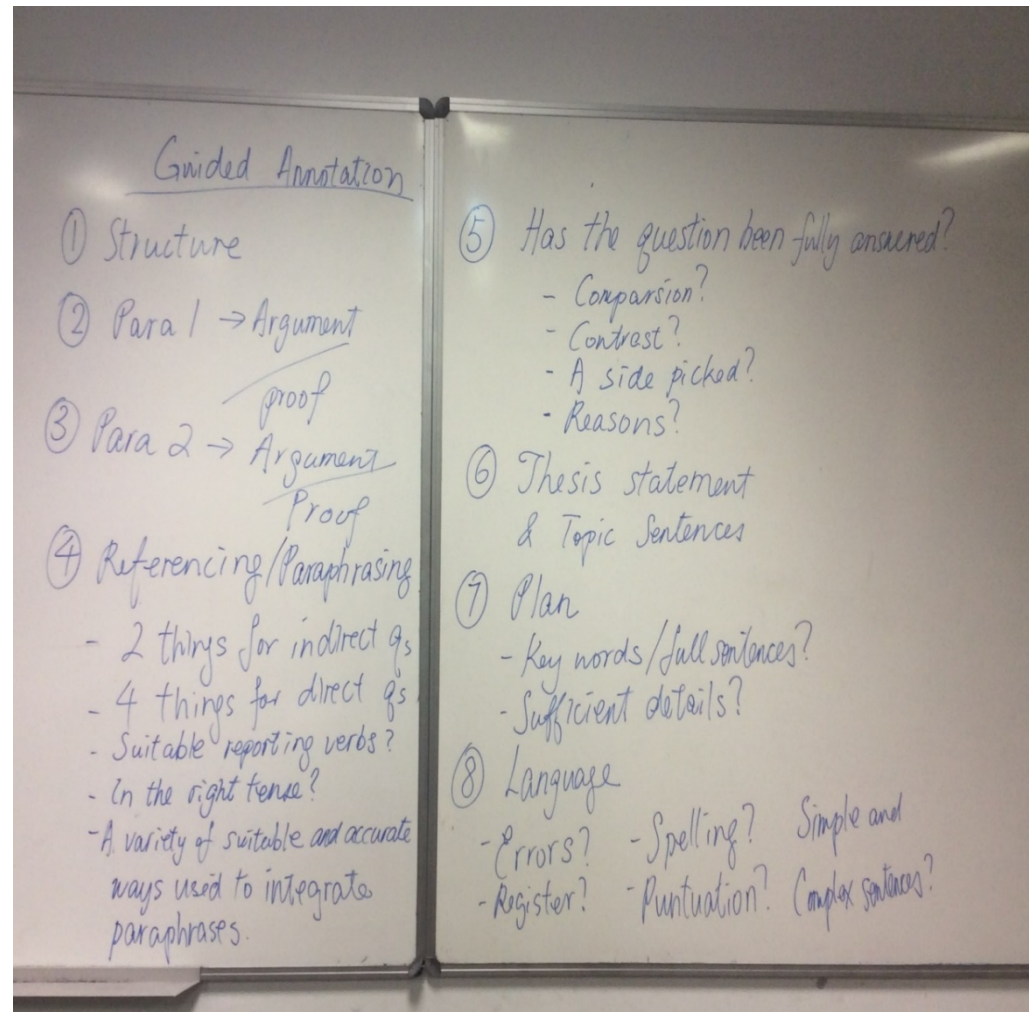 Guided Annotation
① Structure
② Para 1 → Argument
proof
③ Para 2 → Argument
Proof
④ Referencing/Paraphrasing
- 2 things for indirect qs
- 4 things for direct q's
- Suitable reporting verbs?
- In the right tense?
- A variety of suitable and accurate
ways used to integrate
paraphrases.
⑤ Has the question been fully answered?
- Comparsion?
- Contrast?
- A side picked?
- Reasons?
⑥ Thesis statement
& Topic Sentences
⑦ Plan
- Key words/full sentences?
- Sufficient details?
⑧ Language
- Errors? - Spelling? Simple and
- Register? - Puntuation? Complex sentences?